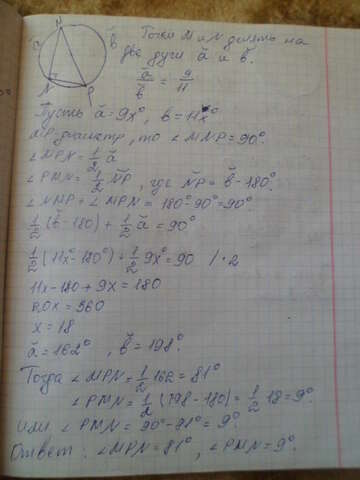 M
ă
b̆
N
P
Точки M и N делят на
две дуги ă и b̆.
ă/b̆ = 9/11
Пусть ă = 9x°, b = 11x°
MP-диаметр, то ∠MNP = 90°.
∠MPN = 1/2 ă
∠PMN = 1/2 N̆P, где N̆P = b̆ - 180°.
∠NMP + ∠MPN = 180° - 90° = 90°
1/2 (b̆ - 180) + 1/2 ă = 90°
1/2 (11x° - 180°) + 1/2 9x° = 90 / · 2
11x - 180 + 9x = 180
20x = 360
x = 18
ă = 162° , b̆ = 198°.
Тогда ∠MPN = 1/2 162 = 81°
∠PMN = 1/2 (198 - 180) = 1/2 18 = 9°.
или ∠PMN = 90° - 81° = 9°.
Ответ: ∠MPN = 81°, ∠PMN = 9°.